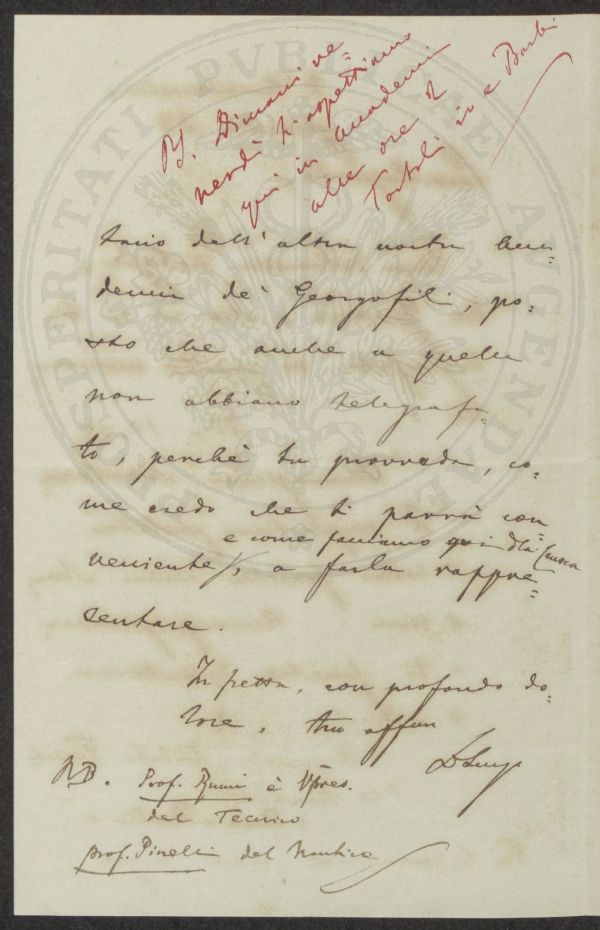 PS. Dimani ve=
nerdì ti aspettiamo
qui in Accademia
alle ore 2
Tortoli io e Barbi
tario dell'altra nostra Acca=
demia de' Georgofili, po=
sto che anche a quella
non abbiano telegrafa=
to, perchè tu provveda, co=
me credo che ti parrà con
e come facciamo qui d.la Crusca
veniente, a farla rappre=
sentare.
In fretta, con profondo do=
lore, tuo affmo
NB. Prof. è VPres.
del Tecnico
prof. Pinelli del Nautico
PROSPERITATI PVBLICAE AVGENDAE